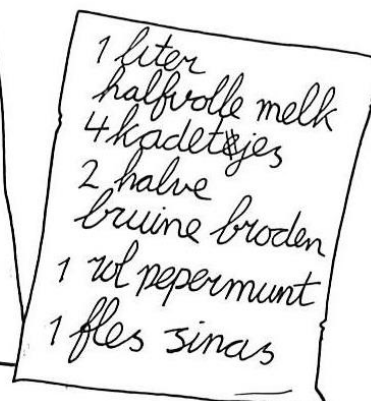 1 liter
halfvolle melk
4 kadetjes
2 halve
bruine broden
1 rol pepermunt
1 fles sinas